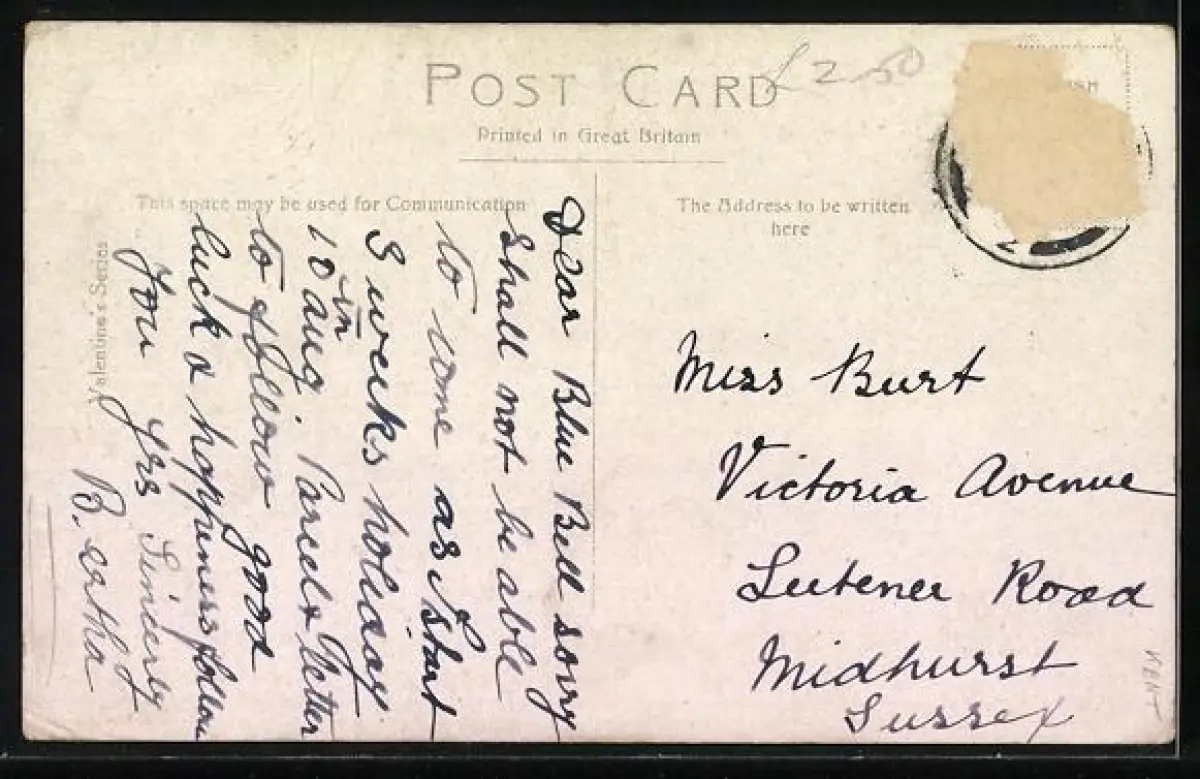 £2.50
POST CARD
Printed in Great Britain
This space may be used for Communication
The Address to be written
here
Valentine's Series
Dear Blue Bell sorry
shall not be able
to come as I start
3 weeks holiday
in
10 aug. Parcel & Letter
to follow good
luck & happiness follow
you yrs Sincerely
B. ertha
Miss Burt
Victoria Avenue
Lutener Road
Midhurst
Sussex
KENT